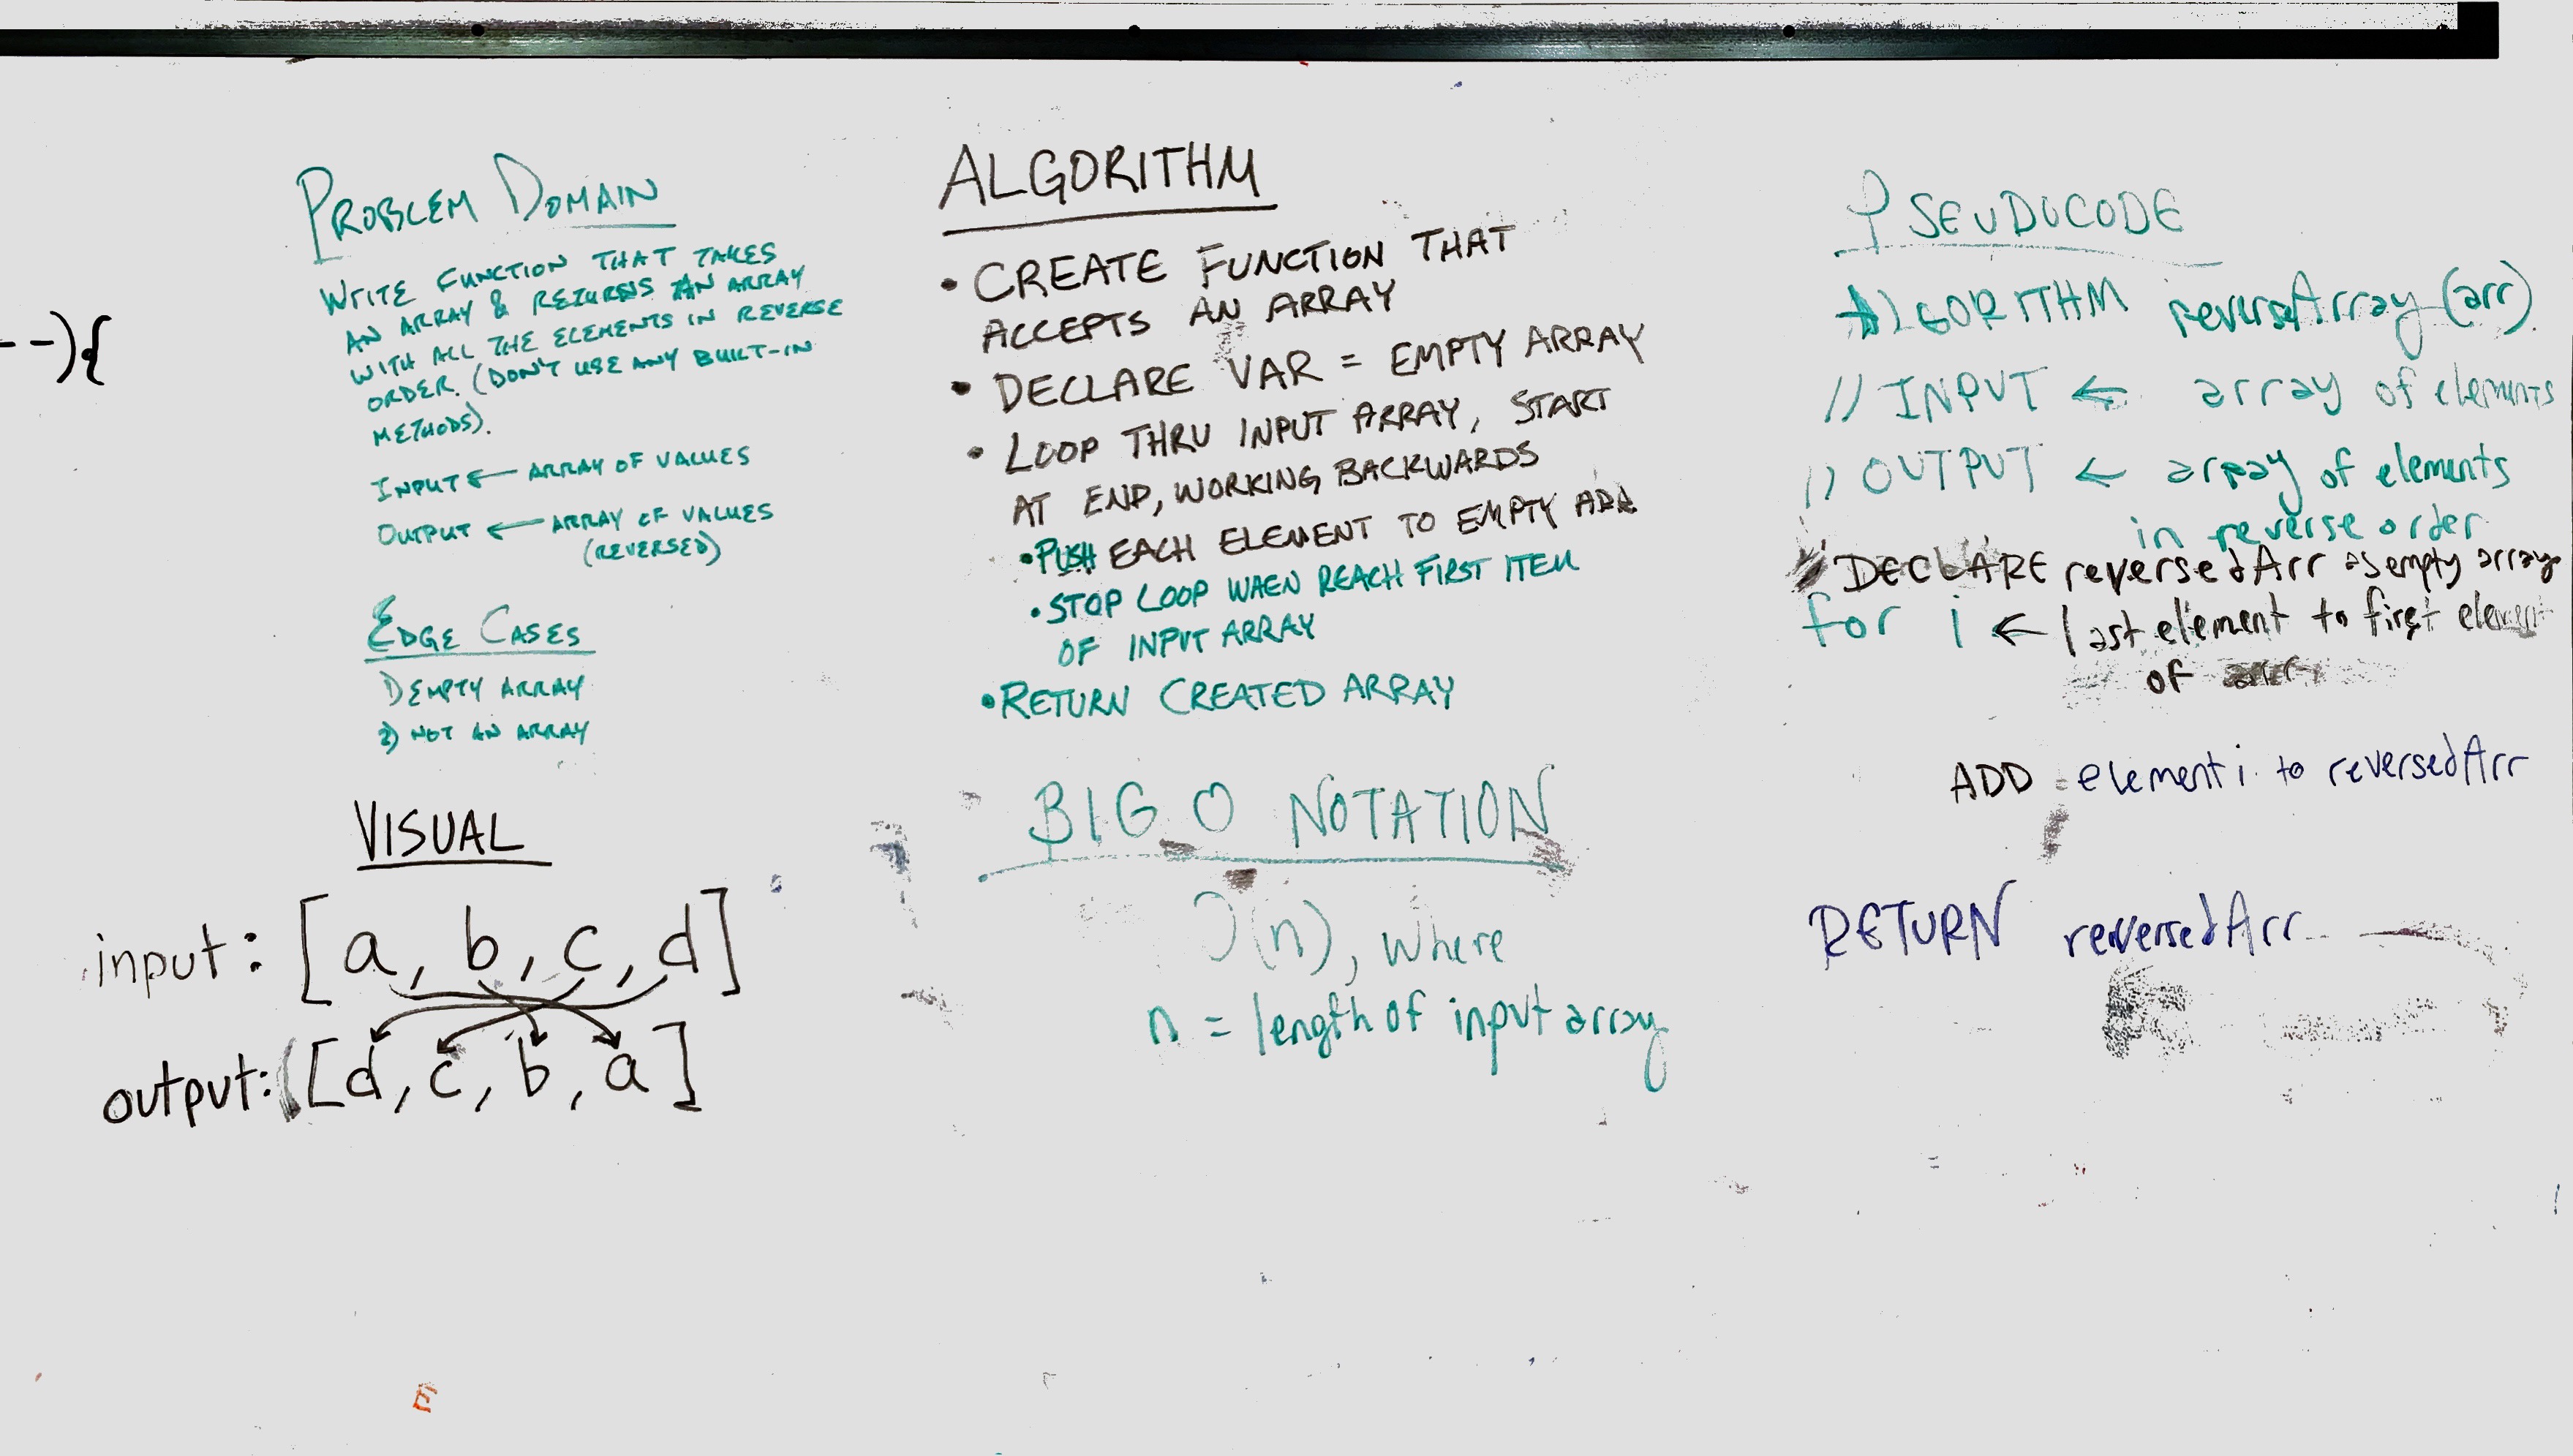 --){
PROBLEM DOMAIN
WRITE FUNCTION THAT TAKES
AN ARRAY & RETURNS AN ARRAY
WITH ALL THE ELEMENTS IN REVERSE
ORDER. (DON'T USE ANY BUILT-IN
METHODS).
INPUT ← ARRAY OF VALUES
OUTPUT ← ARRAY OF VALUES
(REVERSED)
EDGE CASES
1) EMPTY ARRAY
2) NOT AN ARRAY
VISUAL
input: [a, b, c, d]
output: [d, c, b, a]
ALGORITHM
• CREATE FUNCTION THAT
ACCEPTS AN ARRAY
• DECLARE VAR = EMPTY ARRAY
• LOOP THRU INPUT ARRAY, START
AT END, WORKING BACKWARDS
• PUSH EACH ELEMENT TO EMPTY ARR
• STOP LOOP WHEN REACH FIRST ITEM
OF INPUT ARRAY
• RETURN CREATED ARRAY
BIG O NOTATION
O(n), where
n = length of input array
PSEUDOCODE
ALGORITHM reverseArray(arr)
// INPUT ← array of elements
// OUTPUT ← array of elements
in reverse order
DECLARE reversedArr as empty array
for i ← last element to first element
of arr
ADD element i to reversedArr
RETURN reversedArr
E